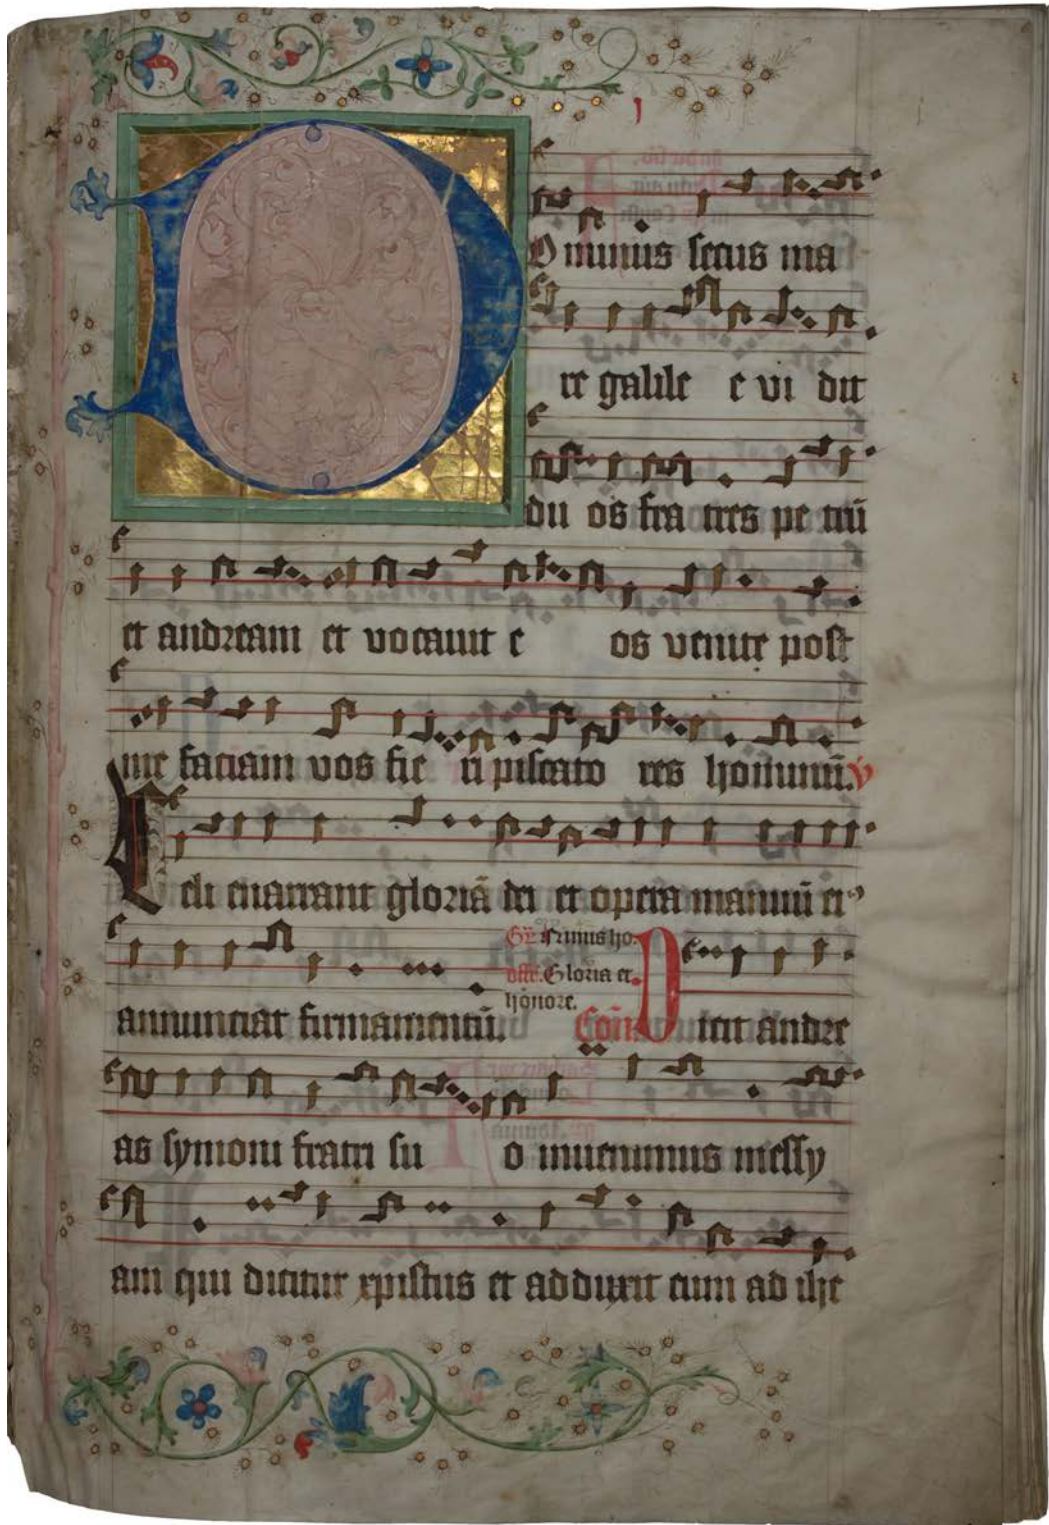 I
Dominus secus ma
re galile e vi dit
du os fra tres pe trū
et andream et vocauit e os venite post
me faciam vos fie ri piscato res hominum. V̄
Celi enarrant gloriā dei et opera manuū eiꝰ
annunciat firmamentū. Coīo Dicit andre
Gr̄ Nimis ho.
offr̄. Gloria et
honore.
as symoni fratri su o inuenimus messy
am qui dicitur xpistus et adduxit eum ad ihe